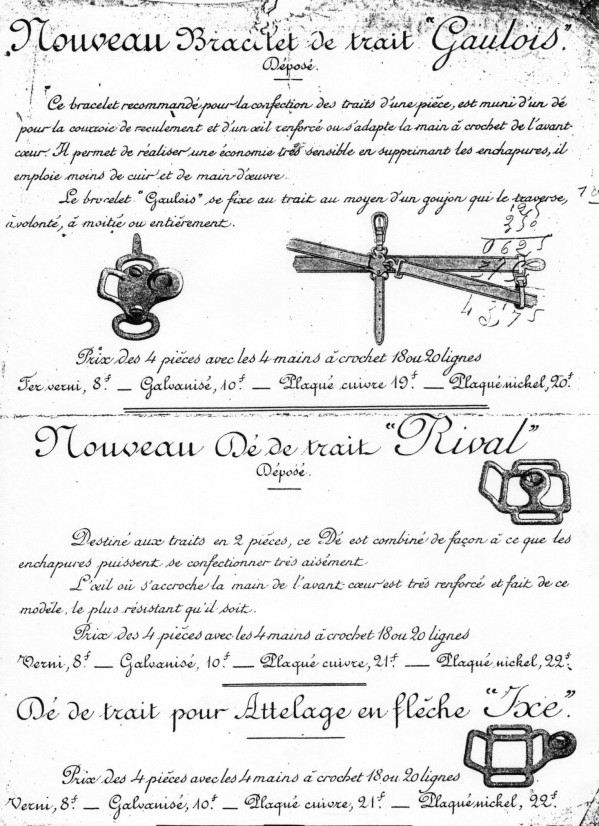 Nouveau Bracelet de trait "Gaulois".
Déposé.
Ce bracelet recommandé pour la confection des traits d'une pièce, est muni d'un dé
pour la courroie de reculement et d'un œil renforcé où s'adapte la main à crochet de l'avant-
cœur. Il permet de réaliser une économie très sensible en supprimant les enchapures, il
emploie moins de cuir et de main d'œuvre.
Le bracelet "Gaulois" se fixe au trait au moyen d'un goujon qui le traverse,
à volonté, à moitié ou entièrement.
250
0625
Prix des 4 pièces avec les 4 mains à crochet 18 ou 20 lignes
Fer verni, 8f — Galvanisé, 10f — Plaqué cuivre 19f — Plaqué nickel, 20f
Nouveau Dé de trait "Rival"
Déposé.
Destiné aux traits en 2 pièces, ce Dé est combiné de façon à ce que les
enchapures puissent se confectionner très aisément.
L'œil où s'accroche la main de l'avant-cœur est très renforcé et fait de ce
modèle, le plus résistant qu'il soit.
Prix des 4 pièces avec les 4 mains à crochet 18 ou 20 lignes
Verni, 8f — Galvanisé, 10f — Plaqué cuivre, 21f — Plaqué nickel, 22f
Dé de trait pour Attelage en flèche "Ixe".
Prix des 4 pièces avec les 4 mains à crochet 18 ou 20 lignes
Verni, 8f — Galvanisé, 10f — Plaqué cuivre, 21f — Plaqué nickel, 22f